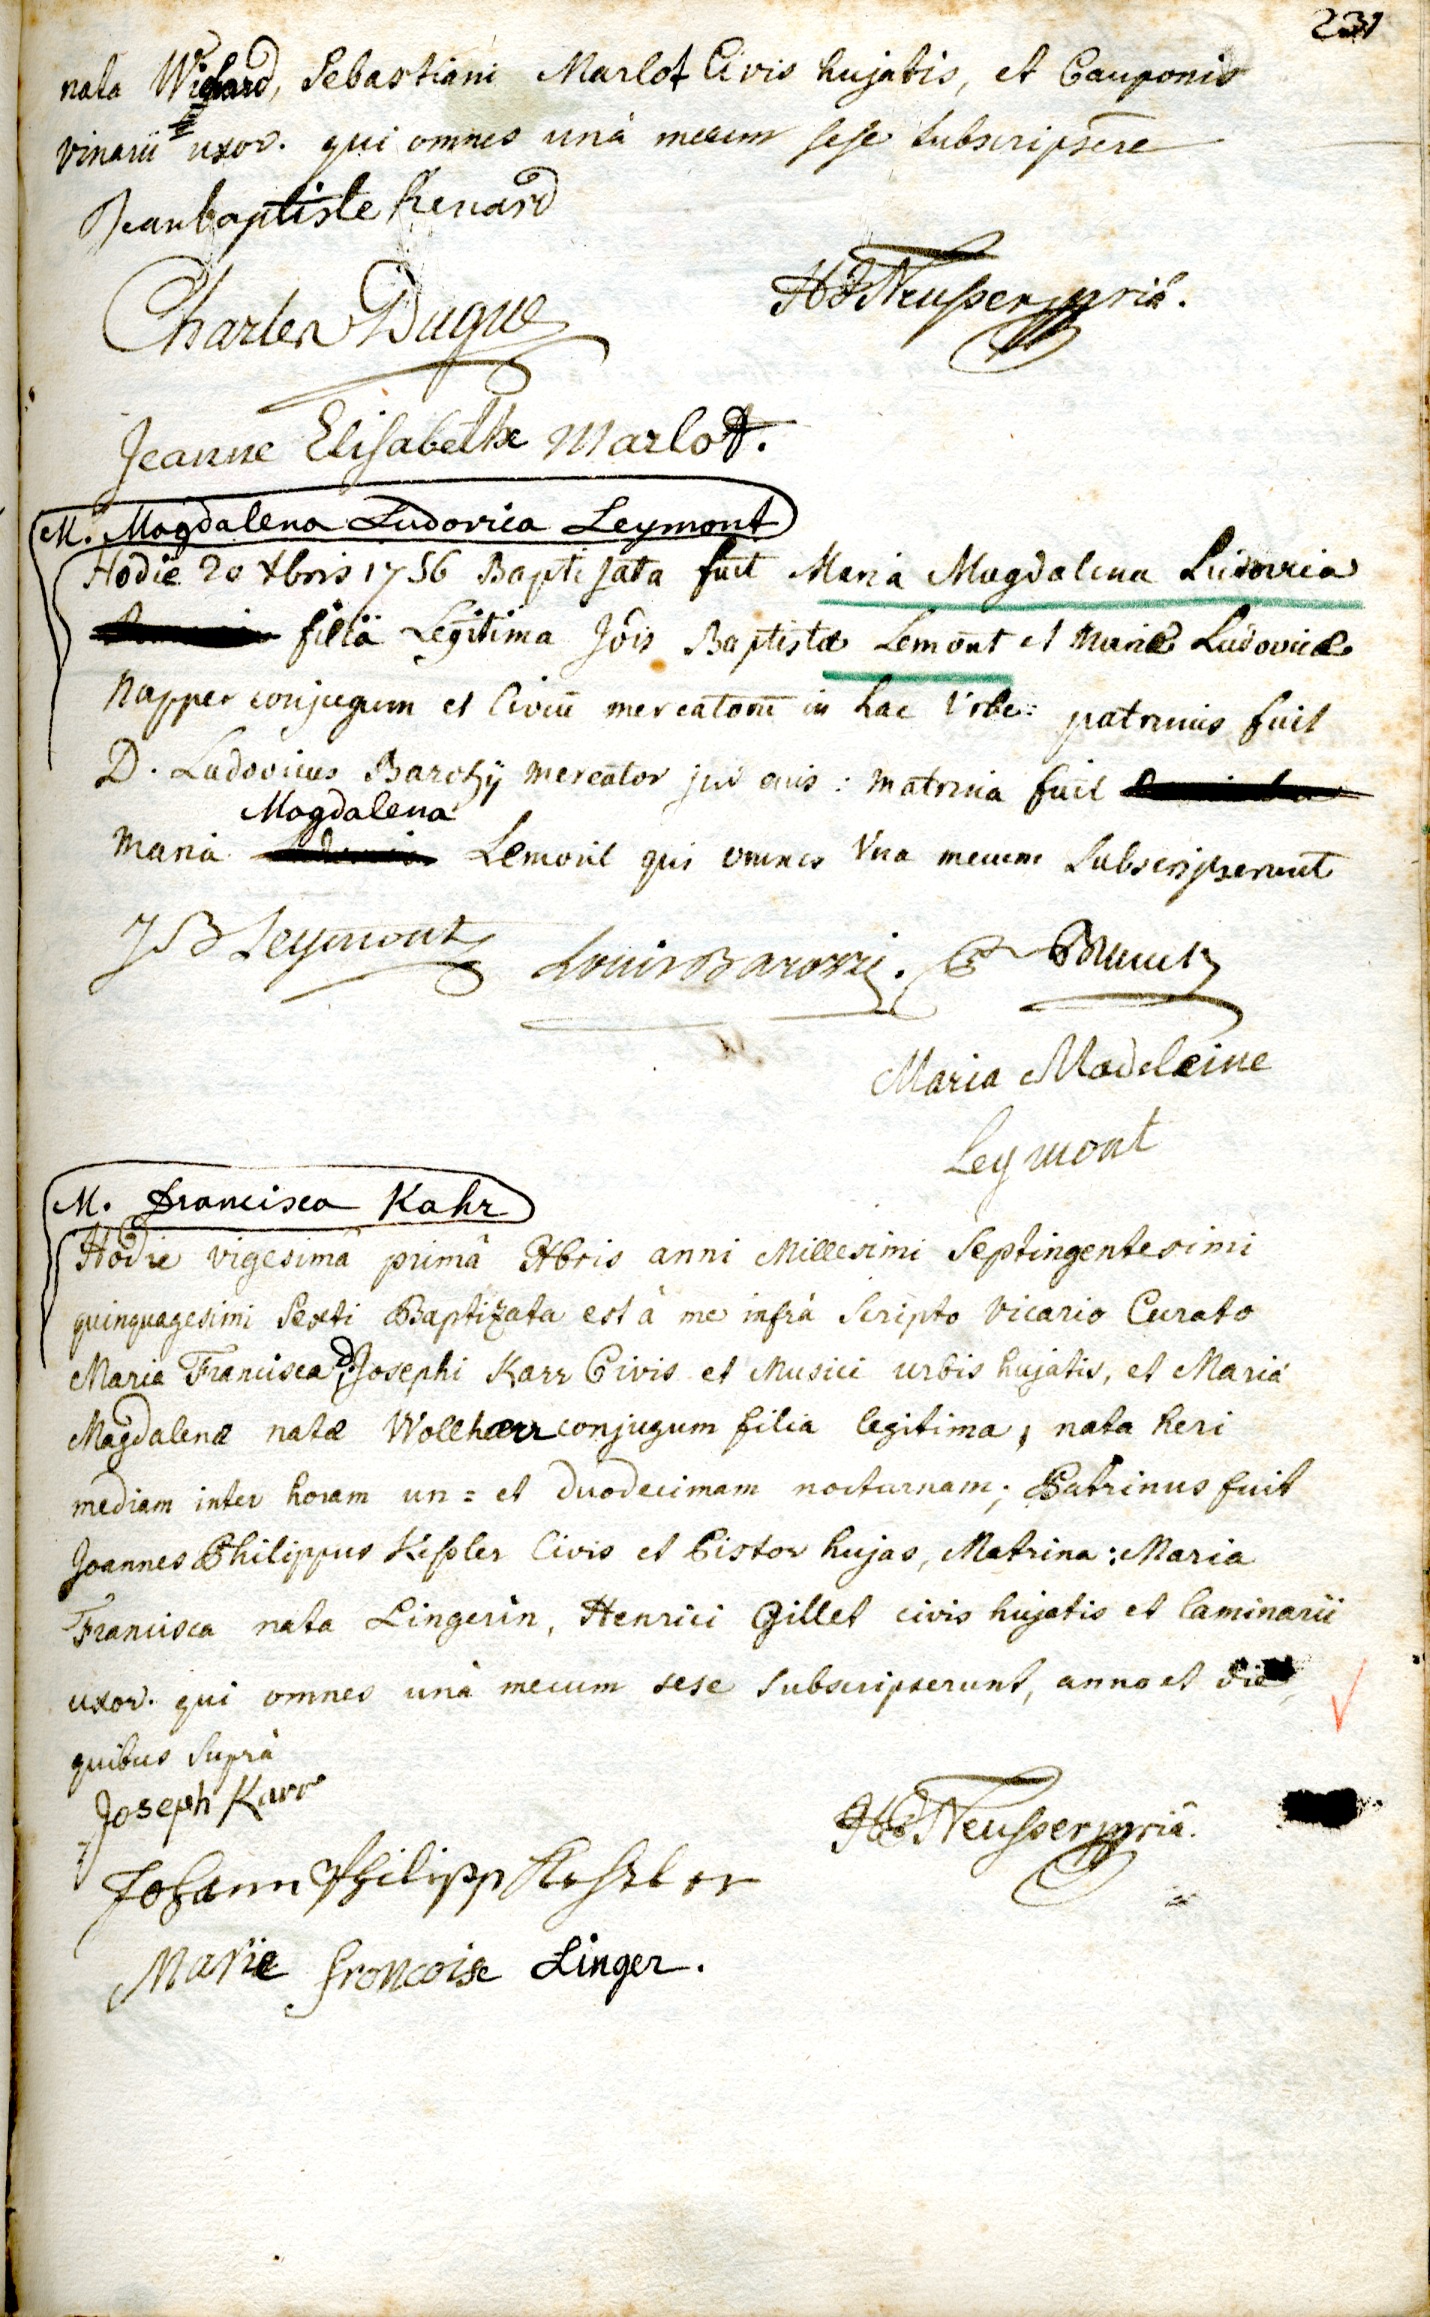 231
nata Wichard, Sebastiani Marlot Civis hujatis, et Cauponis
vinarii uxor. qui omnes unà mecum sese subscripsere
Jeanbaptiste Renard
Charles Dugue
HJNeusser mpriâ.
Jeanne Elisabethe Marlot.
M. Magdalena Ludovica Leymont
Hodie 20 Xbris 1756 Baptisata fuit Maria Magdalena Ludovica
filia Legitima Jois Baptistæ Lemont et Mariæ Ludovicæ
Napper conjugum et Civiū mercatorū in hac Vrbe: patrinus fuit
D. Ludovicus Barozij mercator : matrina fuit
Magdalena
Maria Lemont qui omnes Vna mecum subscripserunt
JB Leymont
Louis Barozzi.
Maria Madeleine
Leymont
M. Francisca Kahr
Hodie vigesimâ primâ Xbris anni Millesimi Septingentesimi
quinquagesimi Sexti Baptizata est â me infrà Scripto Vicario Curato
Maria Francisca, D. Josephi Karr Civis et Musici urbis hujatis, et Maria
Magdalenæ natæ Wollherr conjugum filia legitima, nata heri
mediam inter horam un= et duodecimam nocturnam; Patrinus fuit
Joannes Philippus Kessler Civis et Pistor hujas, Matrina: Maria
Francisca nata Lingerin, Henrici Gillet civis hujatis et laminarii
uxor. qui omnes unà mecum sese subscripserunt, anno et die
quibus Suprà
Joseph Karr
HJNeusser mpriâ.
Johann Philipp Kessler
Marie francoise Linger.